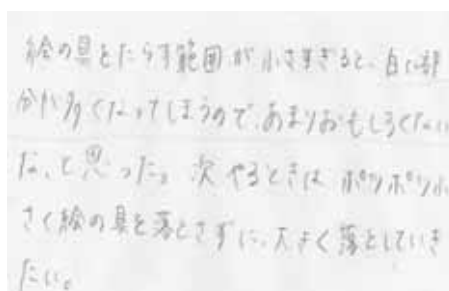 絵の具をたらす範囲が小さすぎると、白い部
分が多くなってしまうので、あまりおもしろくない
な、と思った。次やるときは ポツポツ小
さく絵の具を落とさずに、大きく落としていき
たい。